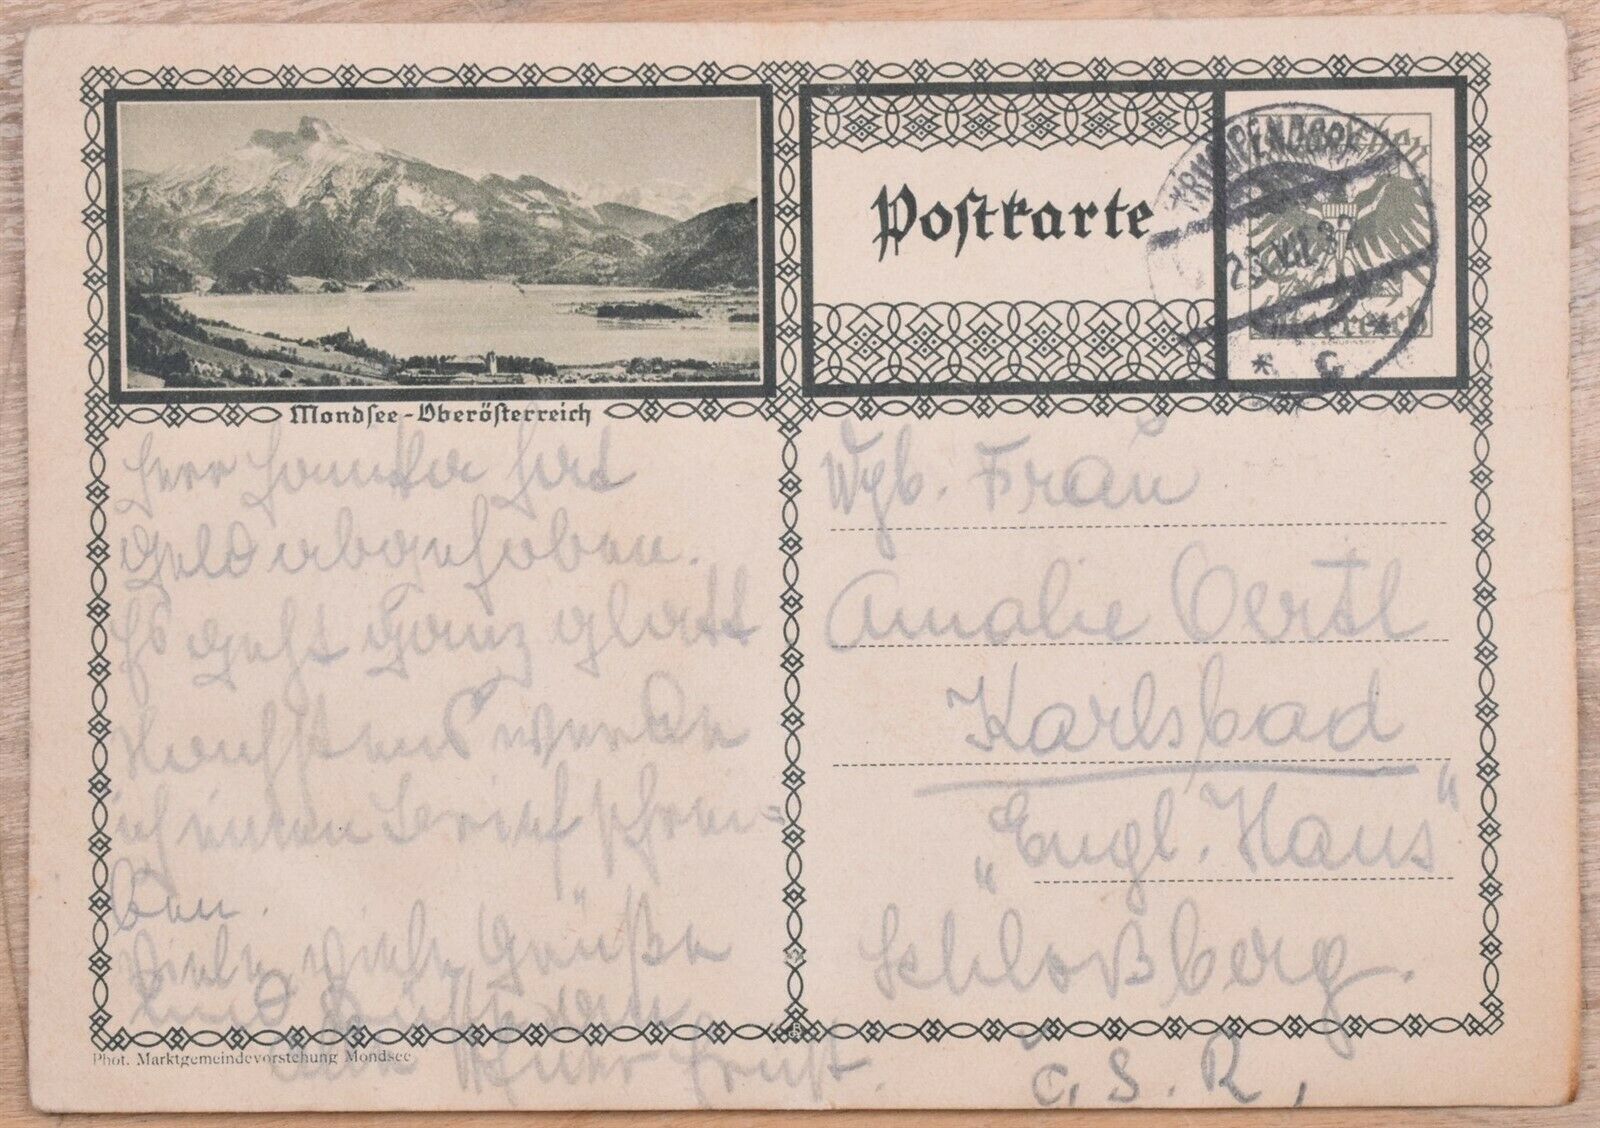 Mondsee-Oberösterreich
Postkarte
Groschen
Österreich
* C
Herr hat
Geld abgehoben.
Es geht ganz glatt
werde
ich einen Brief schrei-
ben.
Viele, viele Grüße
und
Ernst.
Wgb. Frau
Amalie Oertl
Karlsbad
"Engl. Haus"
Schloßberg.
Č.S.R,
Phot. Marktgemeindevorstehung Mondsee